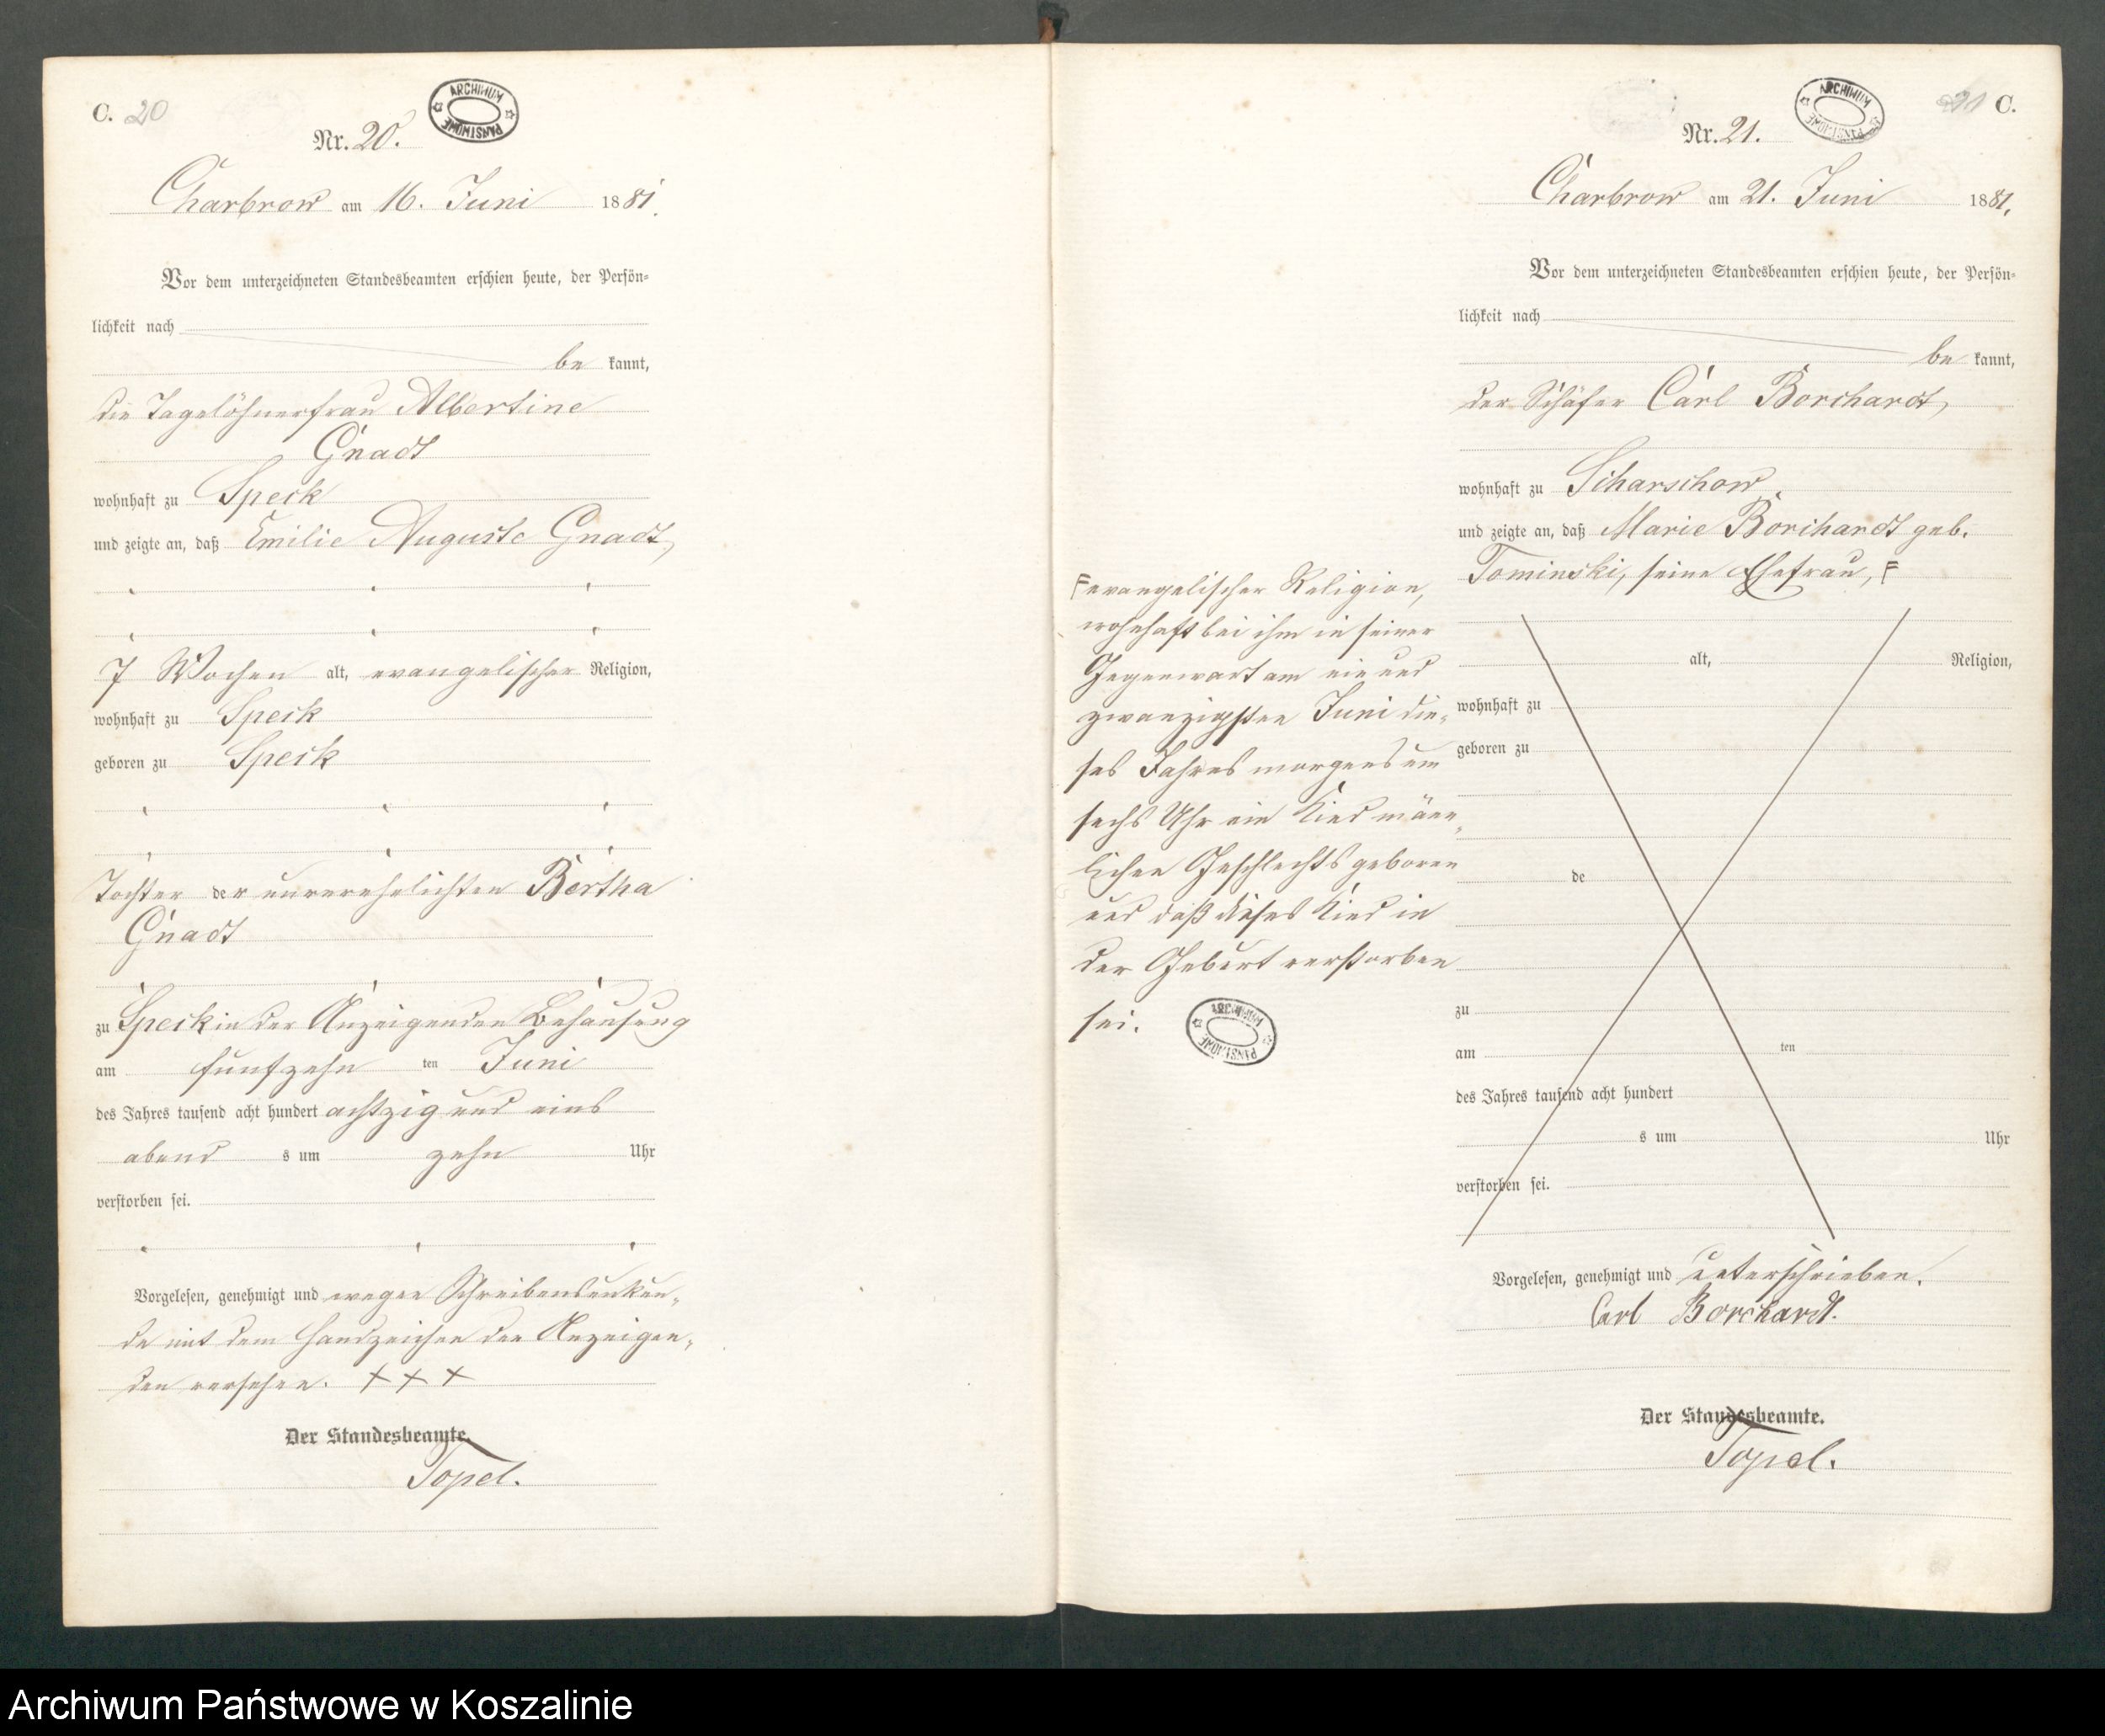 C. 20
ARCHIWUM PAŃSTWOWE
Nr. 20.
Charbrow am 16. Juni 1881.
Vor dem unterzeichneten Standesbeamten erschien heute, der Persön-
lichkeit nach
be kannt,
die Tagelöhnerfrau Albertine
Gnadt
wohnhaft zu Speck
und zeigte an, daß Emilie Auguste Gnadt,
7 Wochen alt, evangelischer Religion,
wohnhaft zu Speck
geboren zu Speck
Tochter der unverehelichten Bertha
Gnadt
zu Speck in der Anzeigenden Behausung
am funfzehn ten Juni
des Jahres tausend acht hundert achtzig und eins
abend s um zehn Uhr
verstorben sei.
Vorgelesen, genehmigt und wegen Schreibensunkun-
de mit dem Handzeichen der Anzeigen-
den versehen. + + +
Der Standesbeamte.
Topel.
21 C.
ARCHIWUM PAŃSTWOWE
Nr. 21.
Charbrow am 21. Juni 1881.
Vor dem unterzeichneten Standesbeamten erschien heute, der Persön-
lichkeit nach
be kannt,
der Schäfer Carl Borchardt,
wohnhaft zu Scharschow
und zeigte an, daß Marie Borchardt geb.
Tominski, seine Ehefrau, F
F evangelischer Religion,
wohnhaft bei ihm in seiner
Gegenwart am ein und
zwanzigsten Juni die-
ses Jahres morgens um
sechs Uhr ein Kind männ-
lichen Geschlechts geboren
und daß dieses Kind in
der Geburt verstorben
sei.
ARCHIWUM PAŃSTWOWE
alt, Religion,
wohnhaft zu
geboren zu
de
zu
am ten
des Jahres tausend acht hundert
s um Uhr
verstorben sei.
Vorgelesen, genehmigt und unterschrieben.
Carl Borchardt.
Der Standesbeamte.
Topel.
Archiwum Państwowe w Koszalinie